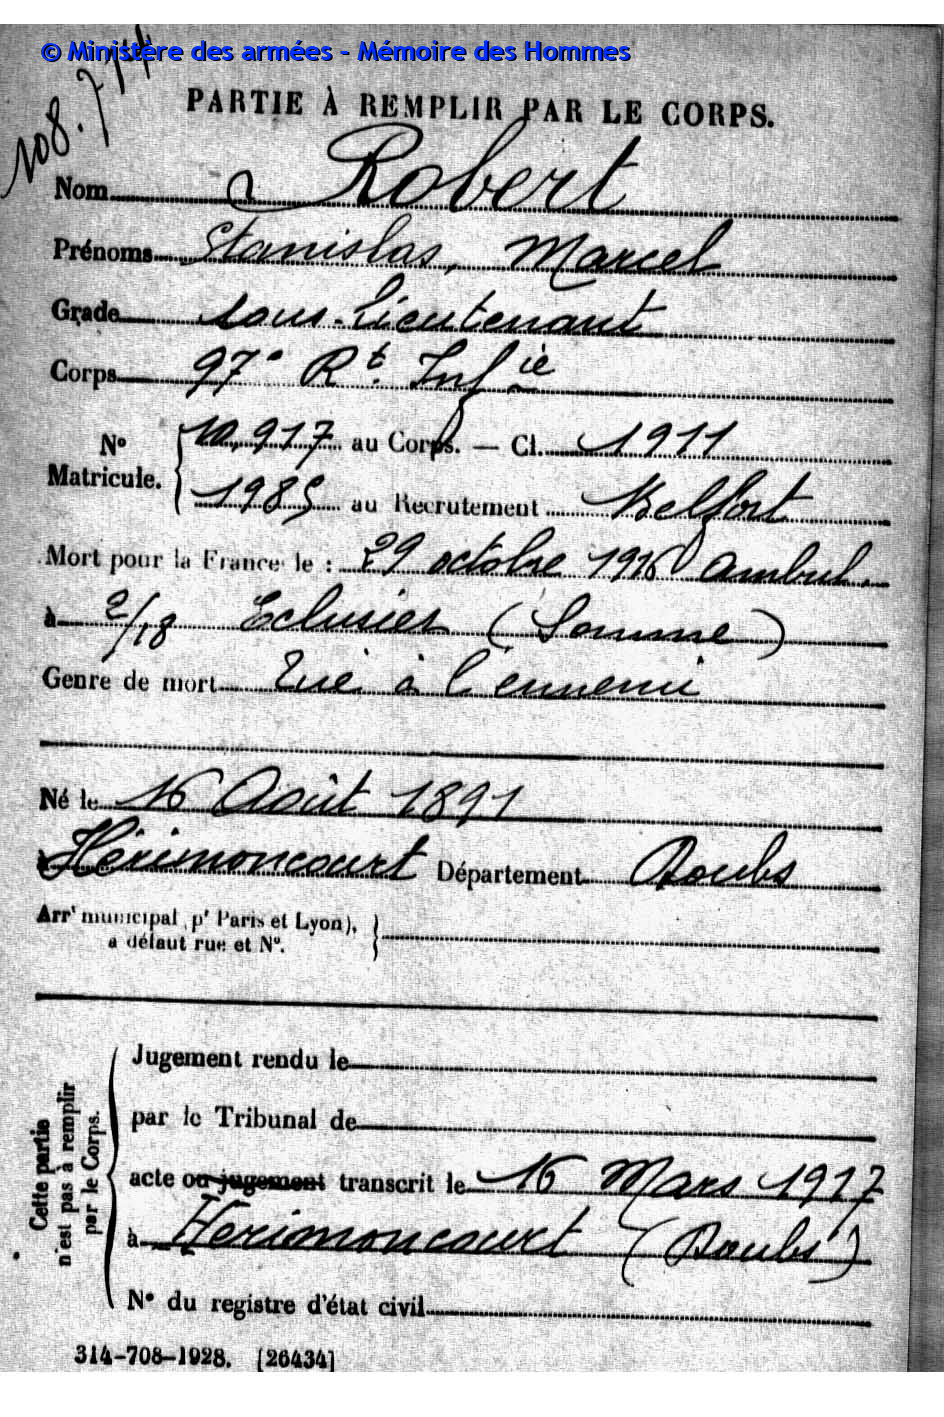 © Ministère des armées - Mémoire des Hommes
108.714
PARTIE À REMPLIR PAR LE CORPS.
Nom Robert
Prénoms Stanislas, Marcel
Grade sous-lieutenant
Corps 97e Rt. Infie
No Matricule. 10,917 au Corps. — Cl. 1911
1985 au Recrutement Belfort
Mort pour la France le : 29 octobre 1916 ambul.
à 2/18 Eclusier (Somme)
Genre de mort Tué à l'ennemi
Né le 16 Août 1891
à Hérimoncourt Département Doubs
Arrt municipal (pr Paris et Lyon),
à défaut rue et No.
Cette partie n'est pas à remplir par le Corps.
Jugement rendu le
par le Tribunal de
acte ou jugement transcrit le 16 Mars 1917
à Hérimoncourt (Doubs)
No du registre d'état civil
314-708-1928. [26434]